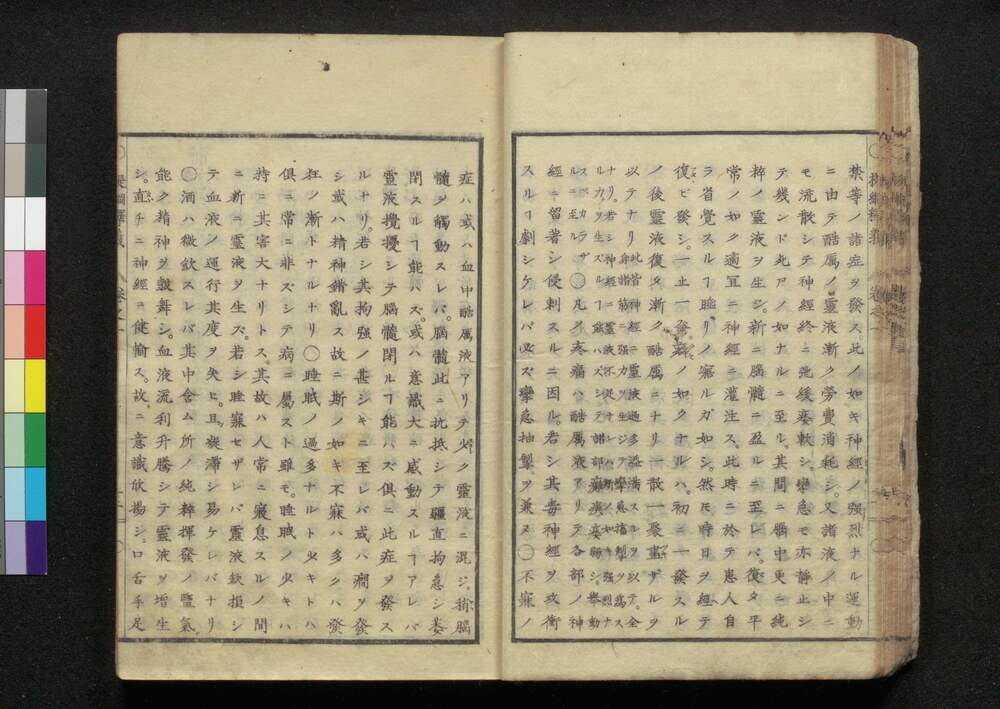 禁等ノ諸症ヲ發ス。此ノ如キ神經ノ强烈ナル運動
ニ由テ酷厲ノ靈液漸ク勞費消耗シ。又諸液ノ中ニ
モ流散シテ神經終ニ弛緩痿軟シ。攣急モ亦靜止シ
テ殘ンド死アノ如ナルニ至ル。其間ニ腦中更ニ純
粹ノ靈液ヲ生シ。新ニ腦髓ニ盈ルニ至レバ。復タ平
常ノ如ク適宜ニ神經ニ灌注ス。此時ニ於テ患人自
ラ省覺スルヿ睡リノ寤ルガ如シ。然モ時日ヲ經テ
復ビ發シ。一止一發。ノ如クナルハ。初ニ一發スル
ノ後靈液復タ漸ク酷厲ニナリ一散一聚盡ザルヲ
以テナリ
○凡ソ疼痛ハ酷厲液アリテ各部ノ神
經ニ留著シ侵刺スルニ因ル。若シ其毒神經ヲ攻衝
スルヿ劇シケレバ必ス攣急抽掣ヲ兼ヌ○不寐ノ
症ハ或ハ血中酷厲液アリテ少ク靈液ニ混シ。揃腦
髓ヲ觸動スレバ。腦髓此ニ抗抵シテ疆直拘急シ萎
閉スルヿ能ハズ。或ハ意識大ニ感動スルヿアレバ
靈液攪擾シテ腦髓閉ルヿ能ハズ。俱ニ此症ヲ發ス
ルナリ。若シ其拘强ノ甚シキニ至レバ或ハ癎ヲ發
シ或ハ精神錯亂ス故ニ斯ノ如キ不寐ハ多クハ發
狂ノ漸トナルナリ○睡眠ノ過多ナルト少キトハ
俱ニ常ニ非ズシテ病ニ屬スト雖モ。睡眠ノ少キハ
特ニ其害大ナリトス。其故ハ人常ニ寢息スルノ間
ニ新ニ靈液ヲ生ズ。若シ睡寐セザレバ靈液欽損シ
テ血液ノ運行其度ヲ失ヒ。且ツ凝滯シ易ケレバナリ
○酒ハ微飮スレバ其中含ム所ノ純粹揮發ノ鹽氣
能ク精神ヲ鼓舞シ。血液流利升騰シテ靈液ヲ增生
シ。直チニ神經ニ健輸ス。故ニ意識欣揚シ。口舌手足